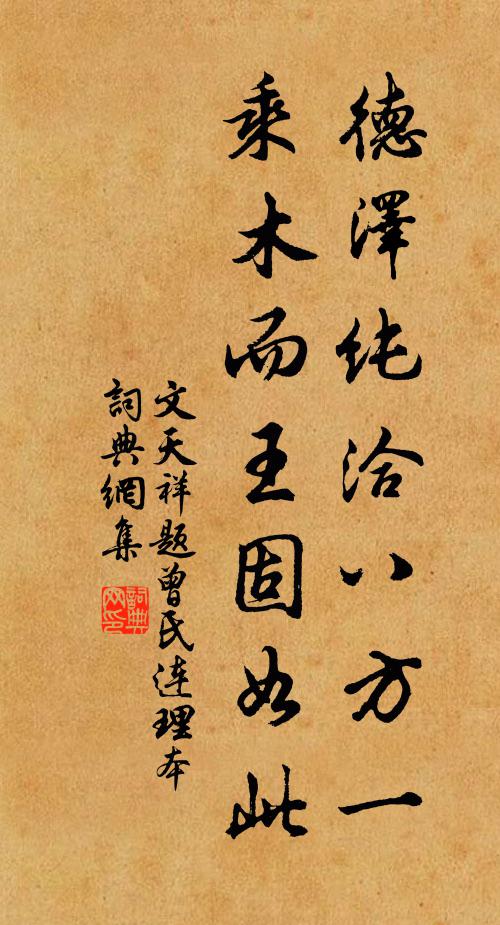 德澤纯洽八方一
乘木而王固如此
文天祥题曾氏连理本
詞典網集
詞典网印